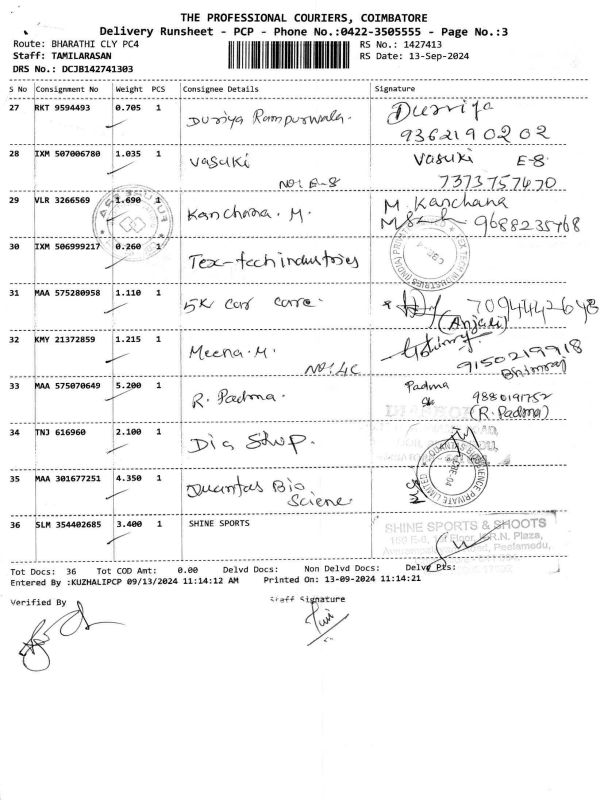 THE PROFESSIONAL COURIERS, COIMBATORE
Delivery Runsheet - PCP - Phone No.:0422-3505555 - Page No.:3
Route: BHARATHI CLY PC4 RS No.: 1427413
Staff: TAMILARASAN RS Date: 13-Sep-2024
DRS No.: DCJB142741303
S No Consignment No Weight PCS Consignee Details Signature
27 RKT 9594493 0.705 1 Duriya Rampurwala. Durriya
9362190202
28 IXM 507006780 1.035 1 Vasuki Vasuki E-8
NO: E-8 7373757670
29 VLR 3266569 1.690 1 Kanchana. M. M. Kanchana
9688235768
30 IXM 506999217 0.260 1 Tex-tech industries
31 MAA 575280958 1.110 1 5K car care. 7094442648
(Anjali)
32 KMY 21372859 1.215 1 Meena. M. 9150219918
NO: 4C
33 MAA 575070649 5.200 1 R. Padma. Padma 9880191752
(R. Padma)
34 TNJ 616960 2.100 1 Dia Shop.
35 MAA 301677251 4.350 1 Quantas Bio
Sciene
36 SLM 354402685 3.400 1 SHINE SPORTS SHINE SPORTS & SHOOTS
Peelamedu,
Tot Docs: 36 Tot COD Amt: 0.00 Delvd Docs: Non Delvd Docs: Delvd Pts:
Entered By :KUZHALIPCP 09/13/2024 11:14:12 AM Printed On: 13-09-2024 11:14:21
Verified By Staff Signature